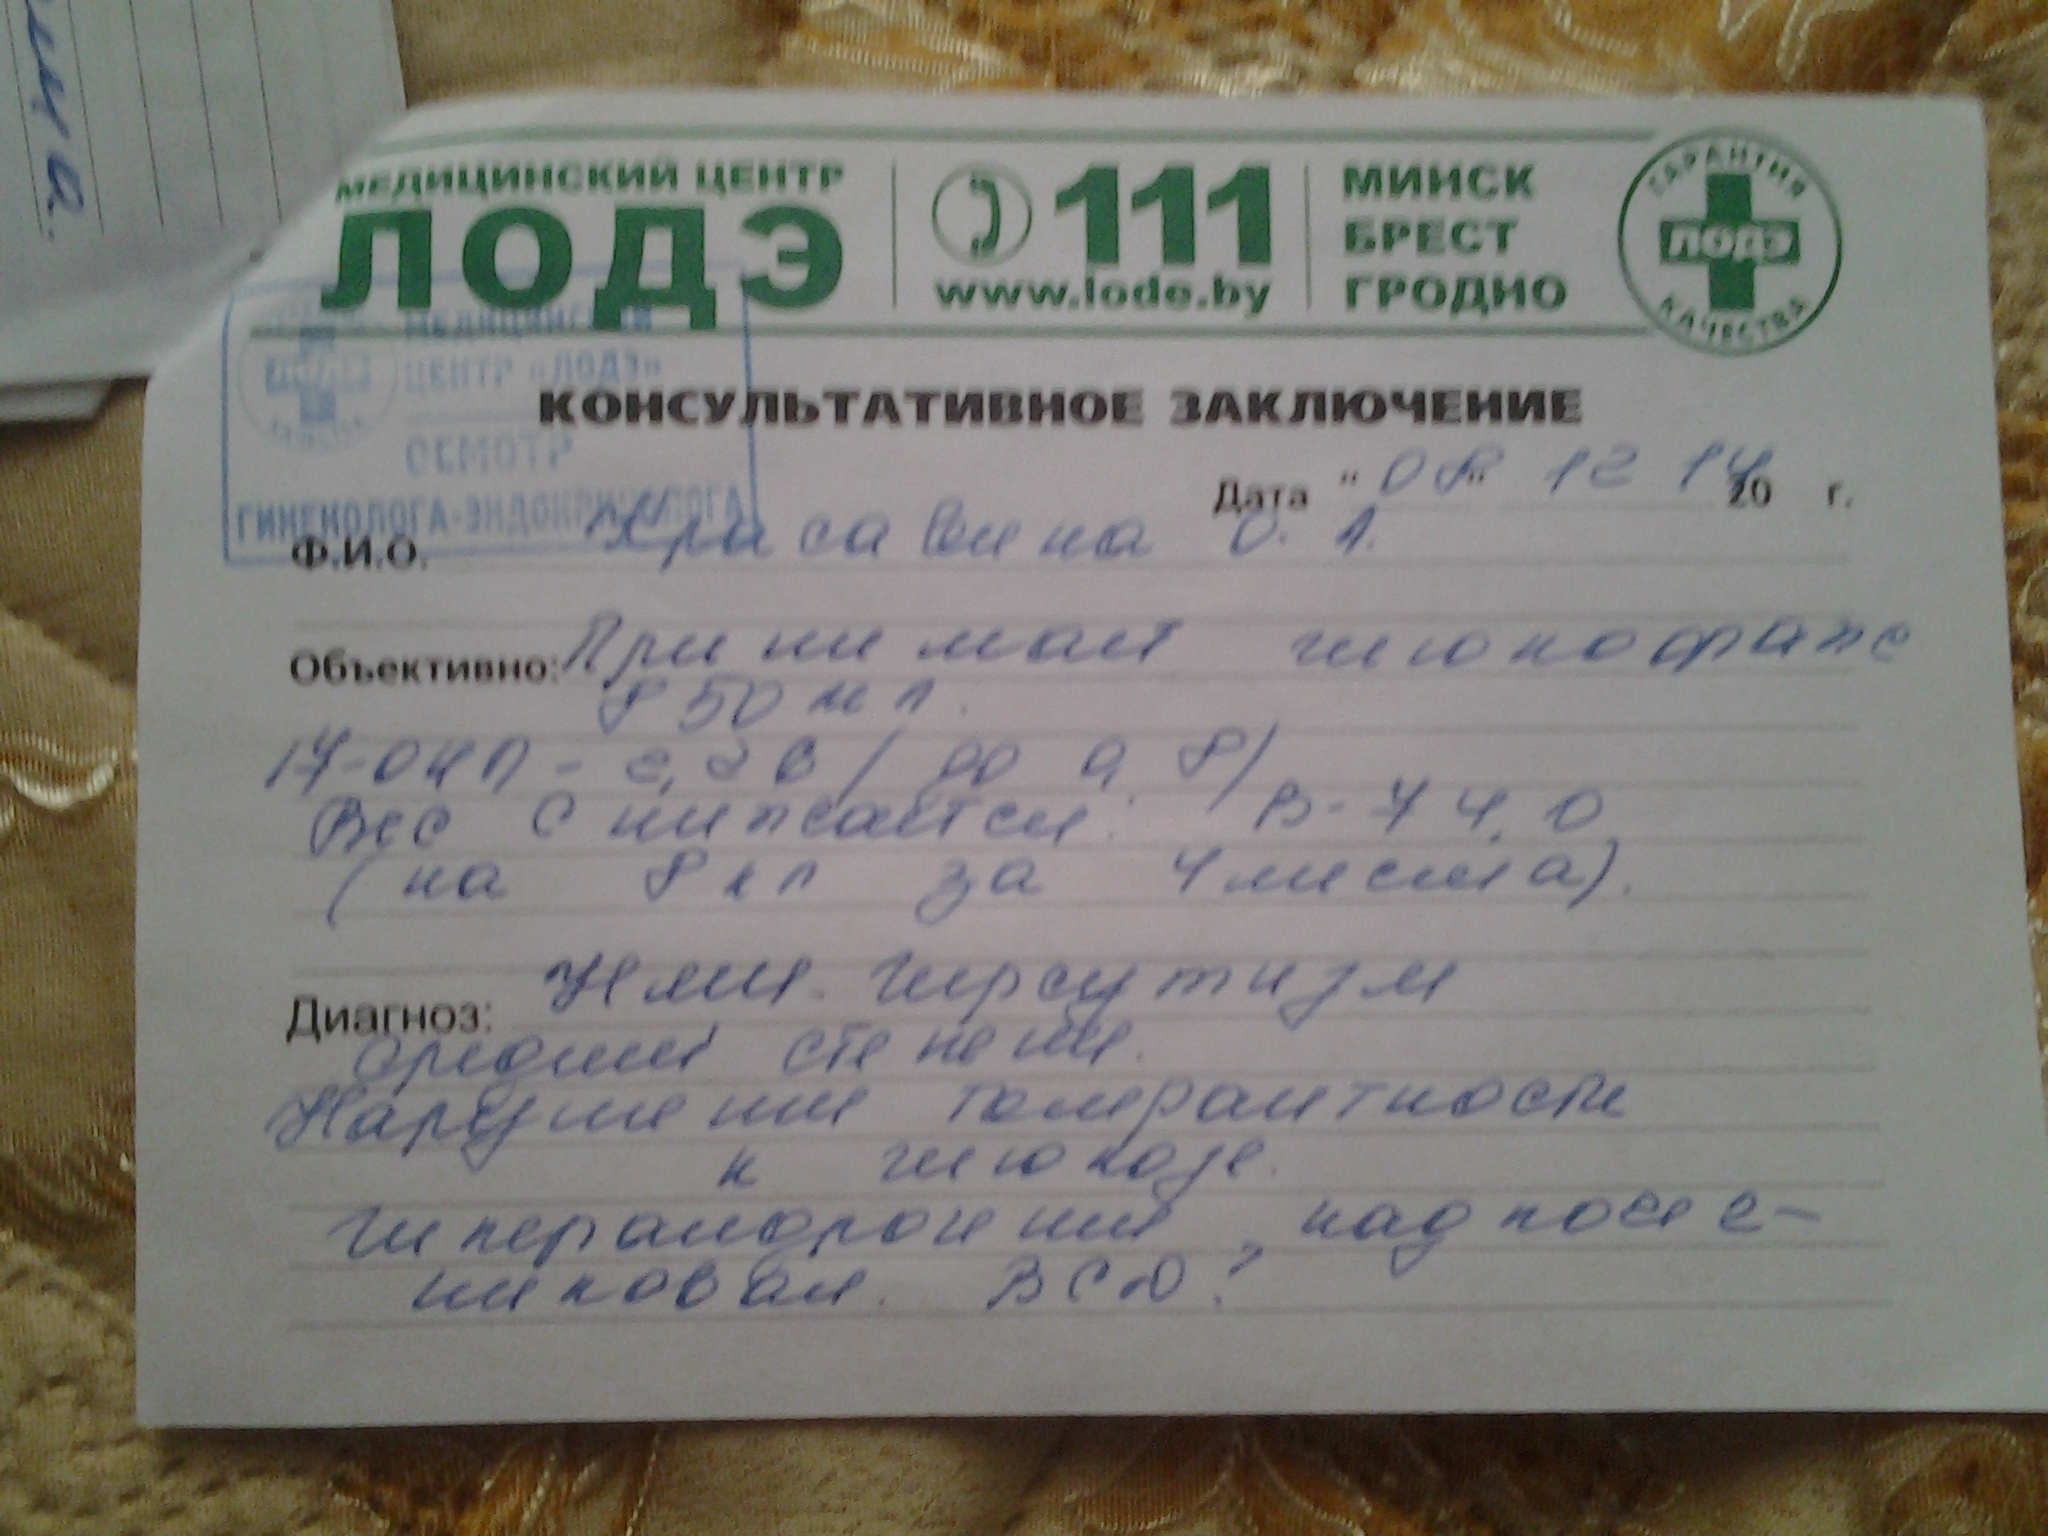 МЕДИЦИНСКИЙ ЦЕНТР
ЛОДЭ
111
www.lode.by
МИНСК
БРЕСТ
ГРОДНО
ГАРАНТИЯ
ЛОДЭ
КАЧЕСТВА
МЕДИЦИНСКИЙ
ЦЕНТР «ЛОДЭ»
ОСМОТР
ГИНЕКОЛОГА-ЭНДОКРИНОЛОГА
КОНСУЛЬТАТИВНОЕ ЗАКЛЮЧЕНИЕ
Дата "08" 12 14 20 г.
Ф.И.О. О. А.
Объективно: Принимает глюкофаж
850 мг.
17-ОКП - 2,26 / до 0,8/
Вес снижается. В-74,0
(на 8 кг за 4 месяца).
Диагноз: НМЦ. Гирсутизм
средней степени.
Нарушение толерантности
к глюкозе.
Гиперандрогения, надпочеч-
никовая. ВСД?